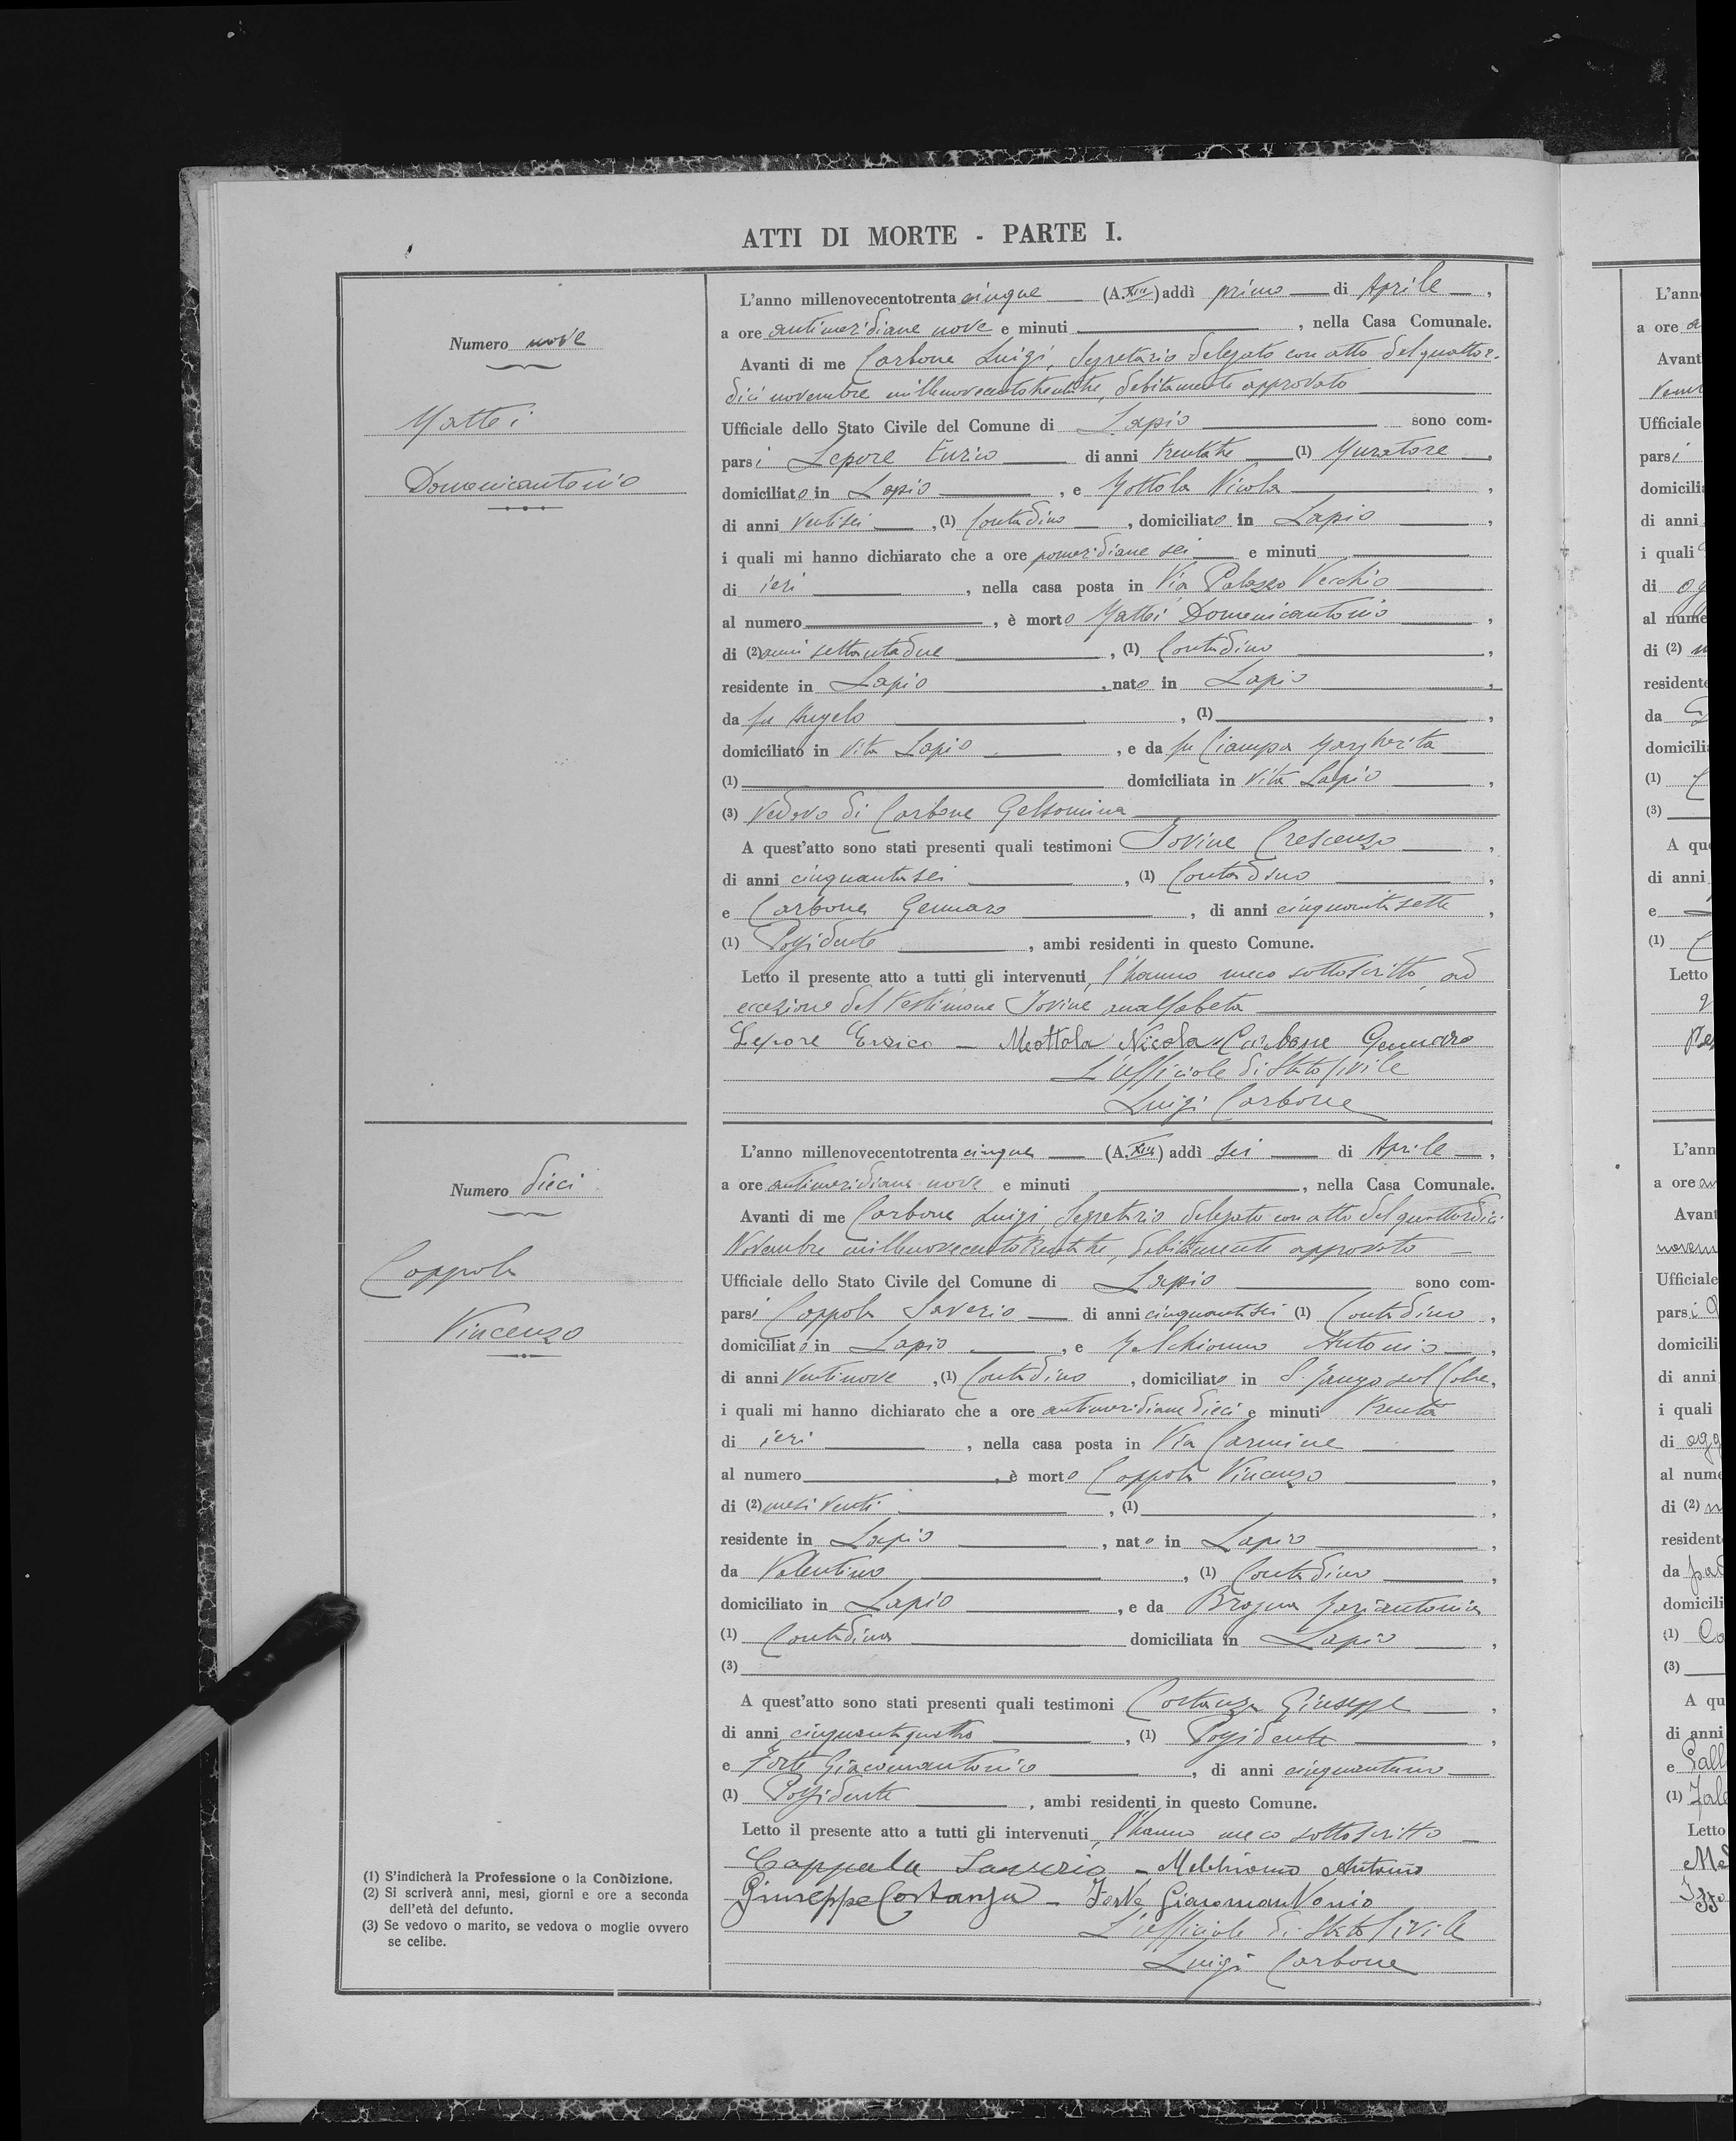 ATTI DI MORTE - PARTE I.
Numero nove
Mattei
Domenicantonio
L'anno millenovecentotrenta cinque (A. XIII) addì primo di Aprile,
a ore antimeridiane nove e minuti , nella Casa Comunale.
Avanti di me Carbone Luigi, Segretario delegato con atto del quattor-
dici novembre millenovecentotrentatre, debitamente approvato
Ufficiale dello Stato Civile del Comune di Lapio sono com-
parsi Lepore Enrico di anni trentatre (1) Muratore,
domiciliato in Lapio, e Mottola Nicola,
di anni ventisei, (1) Contadino, domiciliato in Lapio,
i quali mi hanno dichiarato che a ore pomeridiane sei e minuti
di ieri, nella casa posta in Via Palazzo Vecchio
al numero , è morto Mattei Domenicantonio,
di (2) anni settantadue, (1) Contadino,
residente in Lapio, nato in Lapio,
da fu Angelo, (1) ,
domiciliato in vita Lapio, e da fu Ciampa Margherita
(1) domiciliata in vita Lapio,
(3) Vedovo di Carbone Gelsomina
A quest'atto sono stati presenti quali testimoni Iovine Crescenzo,
di anni cinquantasei, (1) Contadino,
e Carbone Gennaro, di anni cinquantasette,
(1) Possidente, ambi residenti in questo Comune.
Letto il presente atto a tutti gli intervenuti, l'hanno meco sottoscritto, ad
eccezione del testimone Iovine analfabeta
Lepore Enrico - Mottola Nicola Carbone Gennaro
L'ufficiale di Stato Civile
Luigi Carbone
Numero dieci
Coppola
Vincenzo
L'anno millenovecentotrenta cinque (A. XIII) addì sei di Aprile,
a ore antimeridiane nove e minuti , nella Casa Comunale.
Avanti di me Carbone Luigi, Segretario delegato con atto del quattordici
Novembre millenovecentotrentatre, debitamente approvato
Ufficiale dello Stato Civile del Comune di Lapio sono com-
parsi Coppola Saverio di anni cinquantasei (1) Contadino,
domiciliato in Lapio, e Melchionno Antonio,
di anni ventinove, (1) Contadino, domiciliato in S. Mango sul Calore,
i quali mi hanno dichiarato che a ore antimeridiane dieci e minuti trenta
di ieri, nella casa posta in Via Carmine
al numero , è morto Coppola Vincenzo,
di (2) mesi venti, (1) ,
residente in Lapio, nato in Lapio,
da Valentino, (1) Contadino,
domiciliato in Lapio, e da Brogna Mariantonia
(1) Contadina domiciliata in Lapio,
(3)
A quest'atto sono stati presenti quali testimoni Costanza Giuseppe,
di anni cinquantaquattro, (1) Possidente,
e Forte Giacomantonio, di anni cinquantuno
(1) Possidente, ambi residenti in questo Comune.
Letto il presente atto a tutti gli intervenuti, l'hanno meco sottoscritto
Coppola Saverio - Melchionno Antonio
Giuseppe Costanza - Forte Giacomantonio
L'ufficiale di Stato Civile
Luigi Carbone
(1) S'indicherà la Professione o la Condizione.
(2) Si scriverà anni, mesi, giorni e ore a seconda
dell'età del defunto.
(3) Se vedovo o marito, se vedova o moglie ovvero
se celibe.